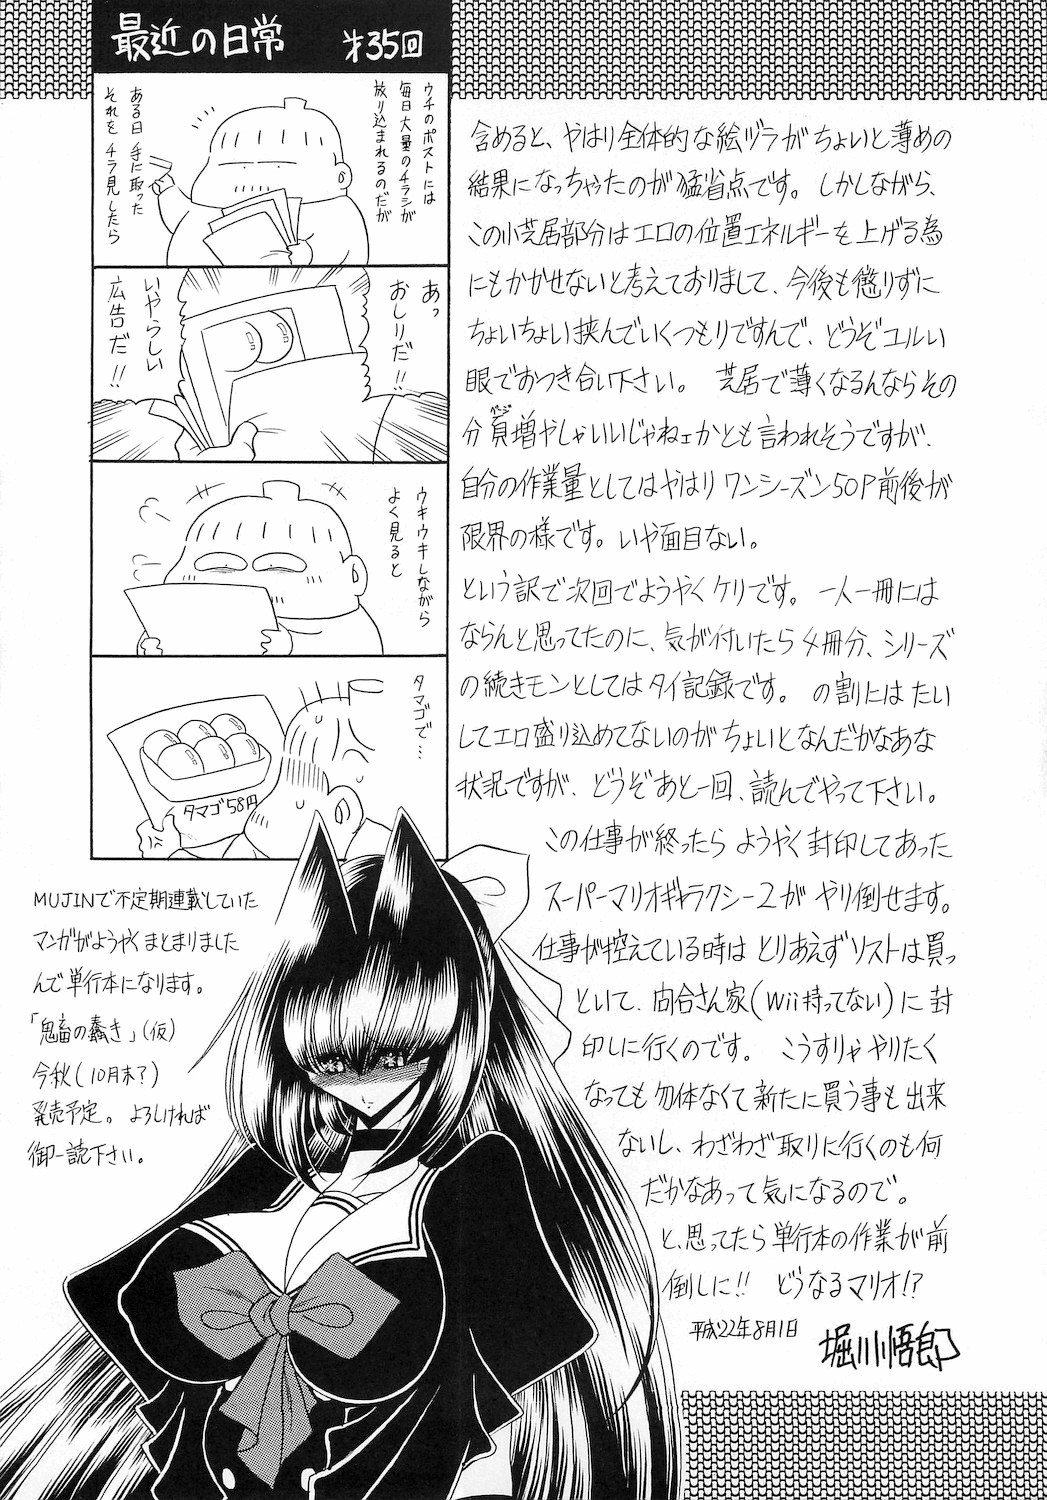 最近の日常 㐧35回
ウチのポストには
毎日大量のチラシが
放り込まれるのだが
ある日 手に取った
それを チラ見したら
あっ
おしりだ!!
いやらしい
広告だ!!
ウキウキしながら
よく見ると
タマゴで…
タマゴ58円
含めると、やはり全体的な絵ヅラがちょいと薄めの
結果になっちゃったのが猛省点です。しかしながら、
この小芝居部分はエロの位置エネルギーを上げる為
にもかかせないと考えておりまして、今後も懲りずに
ちょいちょい挟んでいくつもりですんで、どうぞユルい
眼でおつき合い下さい。 芝居で薄くなるんならその
分頁増やしゃいいじゃねェかとも言われそうですが、
自分の作業量としてはやはりワンシーズン50P前後が
限界の様です。いや面目ない。
という訳で次回でようやくケリです。一人一冊には
ならんと思ってたのに、気が付いたら4冊分、シリーズ
の続きモンとしてはタイ記録です。の割にはたい
してエロ盛り込めてないのがちょいとなんだかなあな
状況ですが、どうぞあと一回、読んでやって下さい。
この仕事が終ったらようやく封印してあった
スーパーマリオギャラクシー2がやり倒せます。
仕事が控えている時はとりあえずソフトは買っ
といて、向合さん家(Wii持ってない)に封
印しに行くのです。こうすりゃやりたく
なっても勿体なくて新たに買う事も出来
ないし、わざわざ取りに行くのも何
だかなあって気になるので。
と、思ってたら単行本の作業が前
倒しに!! どうなるマリオ!?
平成22年8月1日
堀川悟郎
MUJINで不定期連載していた
マンガがようやくまとまりました
んで単行本になります。
「鬼畜の蠢き」(仮)
今秋(10月末?)
発売予定。よろしければ
御一読下さい。